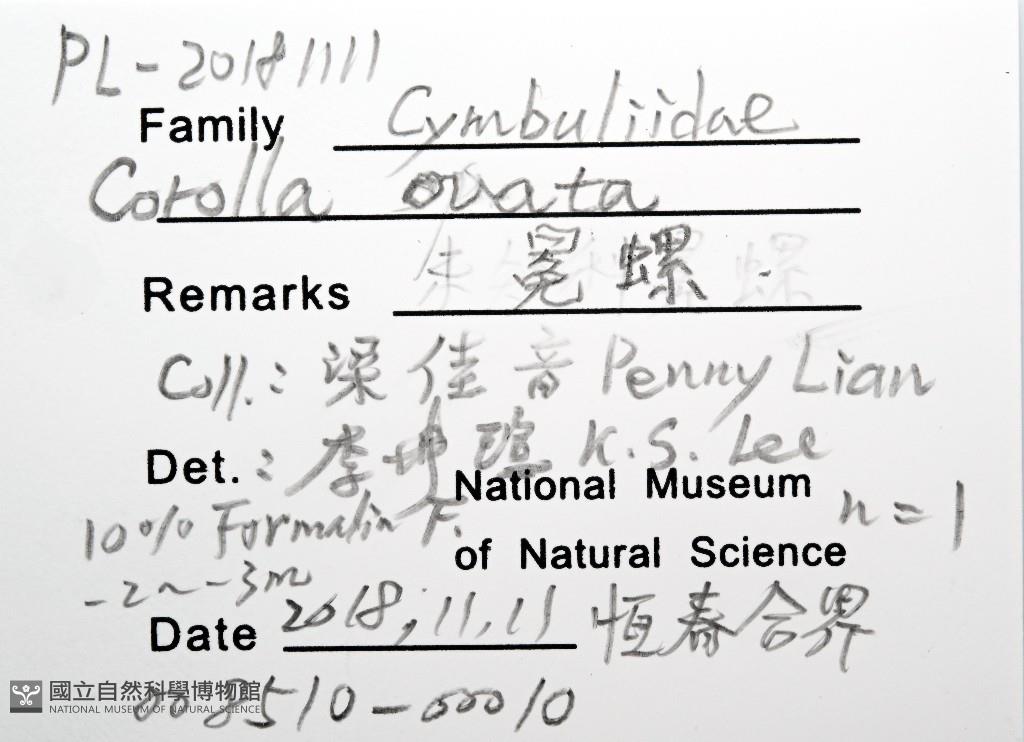 PL-20181111
Family Cymbuliidae
Corolla ovata
Remarks 冕螺
Coll.: 梁佳音 Penny Lian
Det.: 李坤瑄 K.S. Lee
National Museum
10% Formalin F. n=1
of Natural Science
-2~-3m
Date 2018.11.11 恆春合界
國立自然科學博物館
NATIONAL MUSEUM OF NATURAL SCIENCE
008510-00010